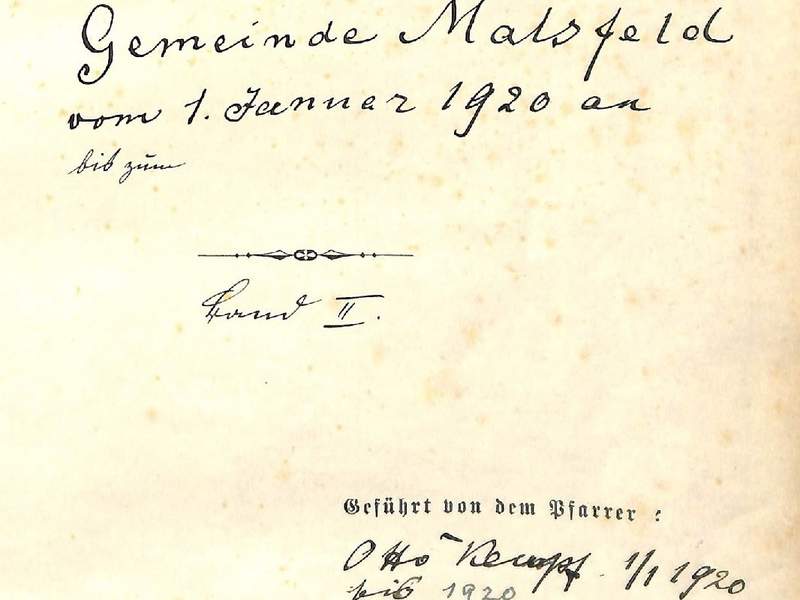 Gemeinde Malsfeld
vom 1. Januar 1920 an
bis zum
Band II.
Geführt von dem Pfarrer :
Otto Kempf. 1/1 1920
bis 1920